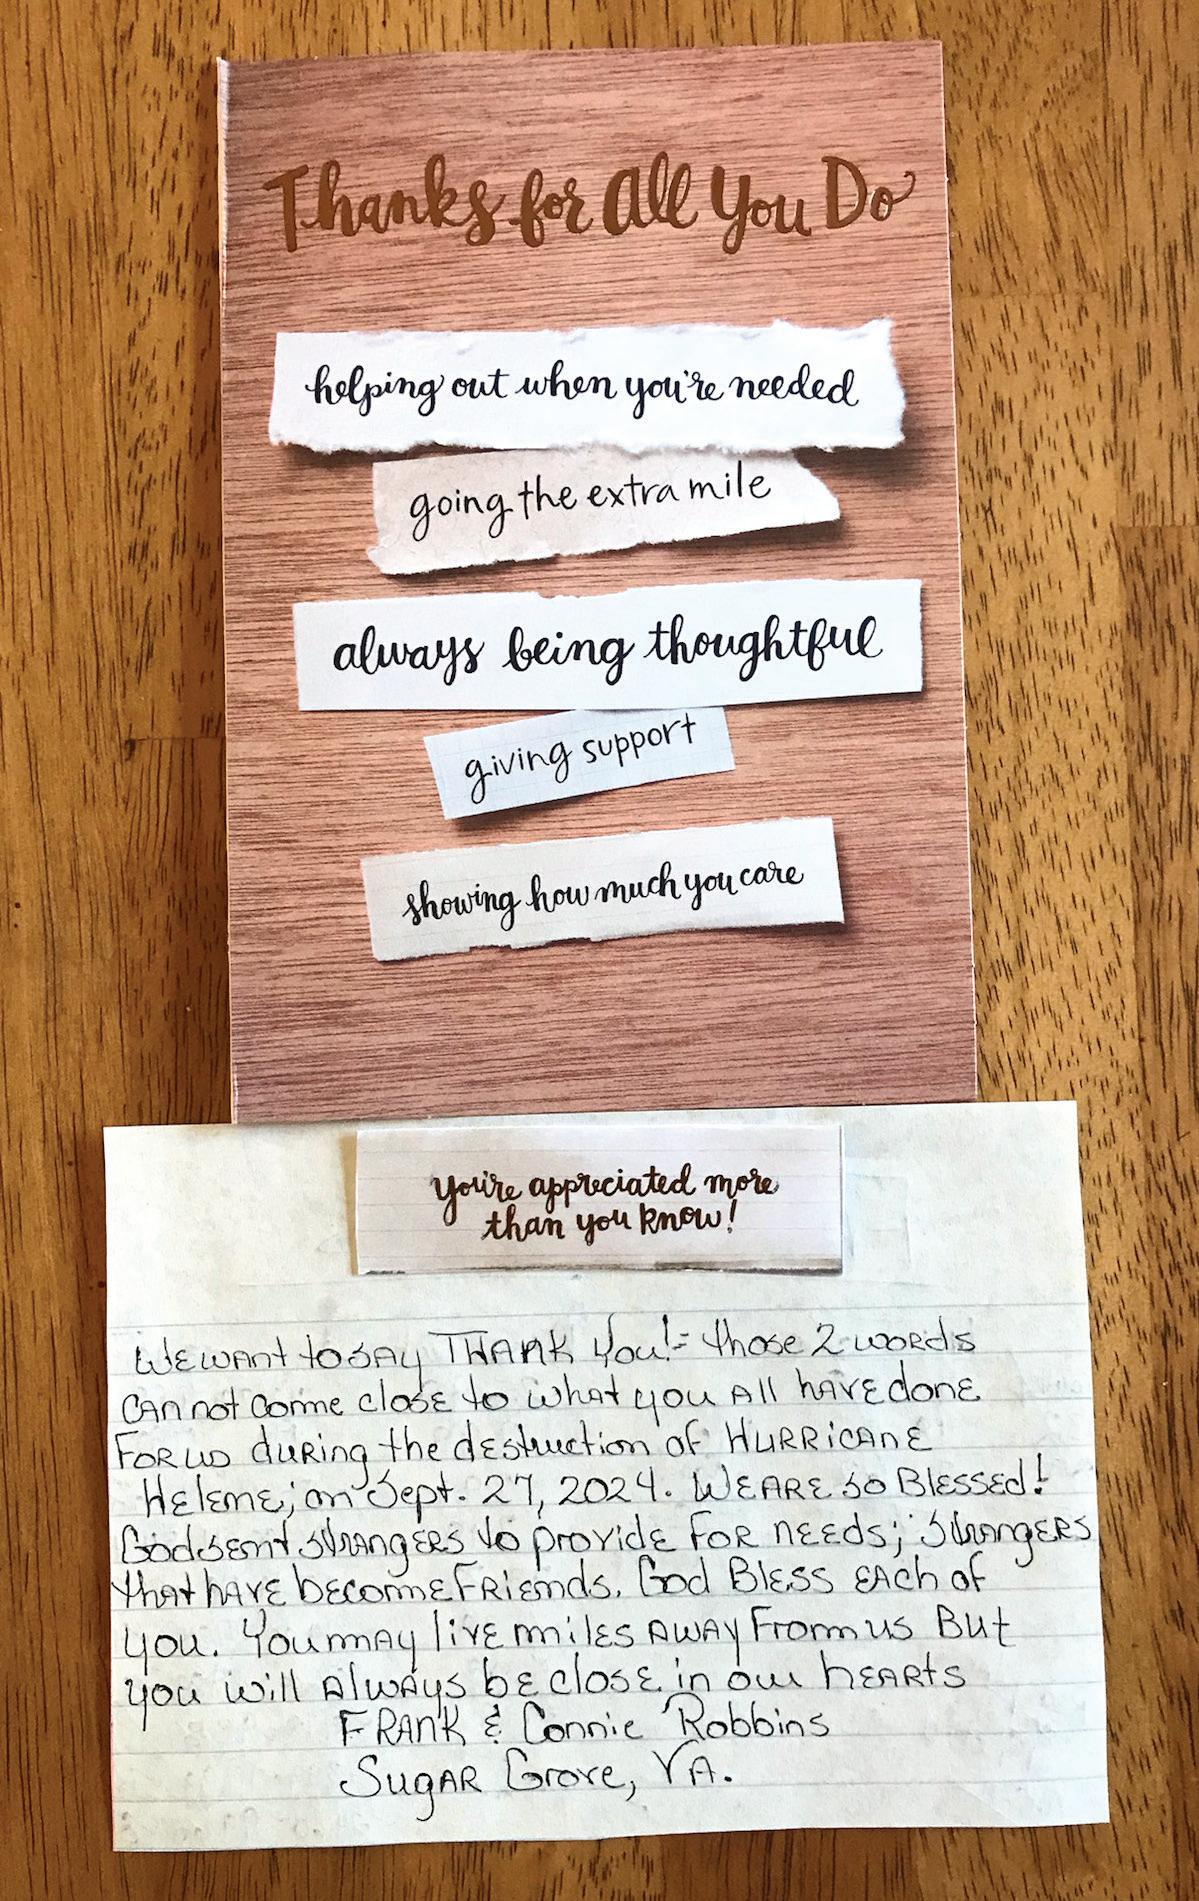 Thanks for All You Do
helping out when you're needed
going the extra mile
always being thoughtful
giving support
showing how much you care
you're appreciated more
than you know!
We want to say THANK You!- those 2 words
cannot come close to what you all have done
For us during the destruction of HURRiCANE
Helene; on Sept. 27, 2024. We are so Blessed!
God sent strangers to provide for needs; strangers
that have become Friends. God Bless each of
you. You may live miles away From us But
you will always be close in our hearts
FRANK & Connie Robbins
Sugar Grove, VA.